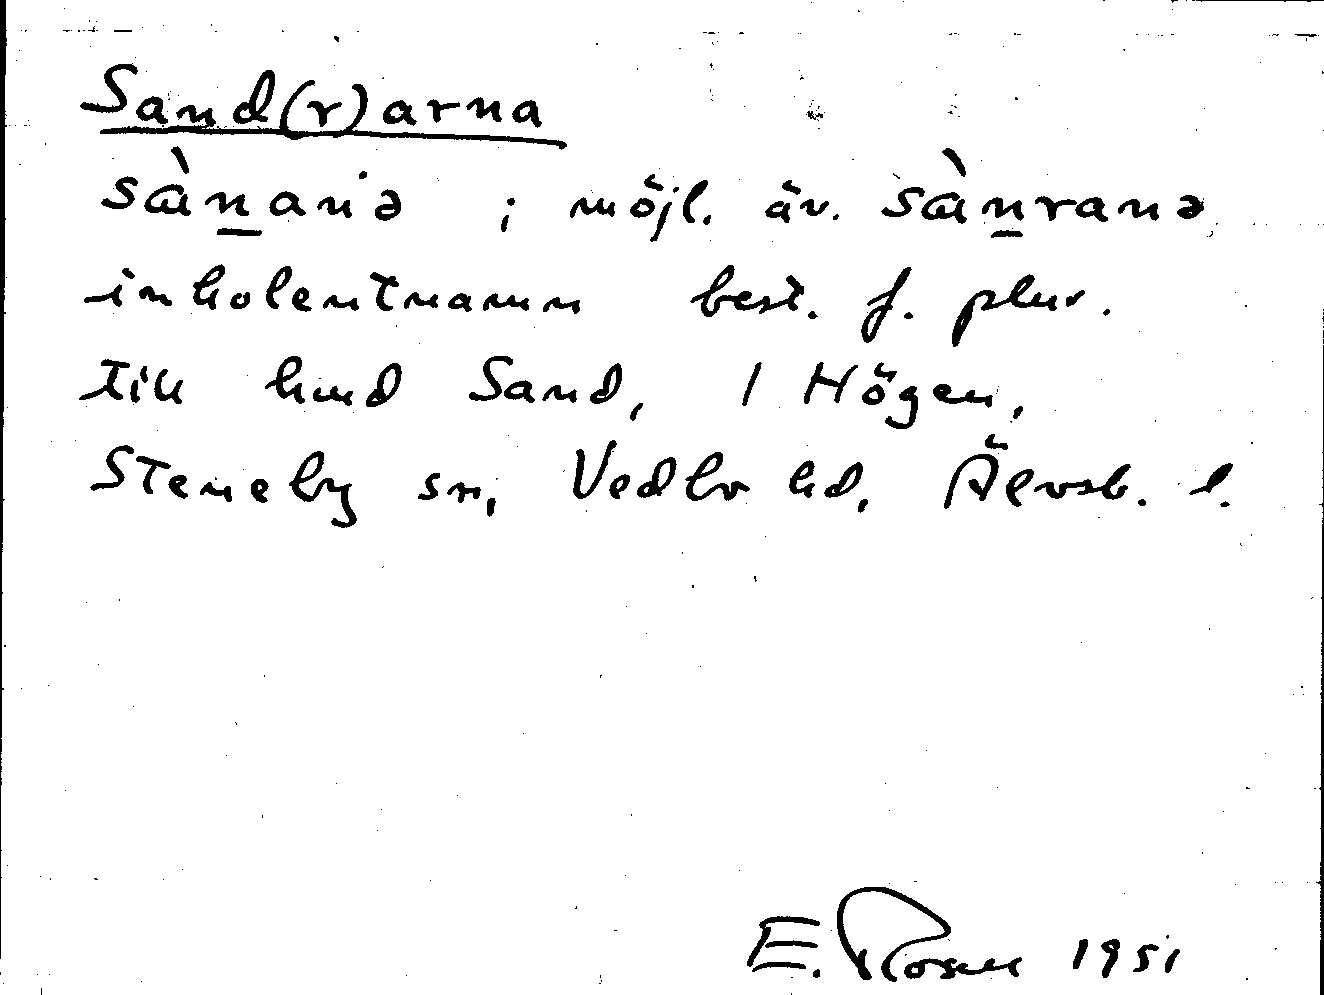 Sand(r)arna
sàn̲anə ; möjl. äv. sàn̲ranə
inbolentnamn best. f. plur.
till hmd Sand, 1 Högen,
Steneby sn, Vedbo hd, Älvsb. l.
E. Rosell 1951